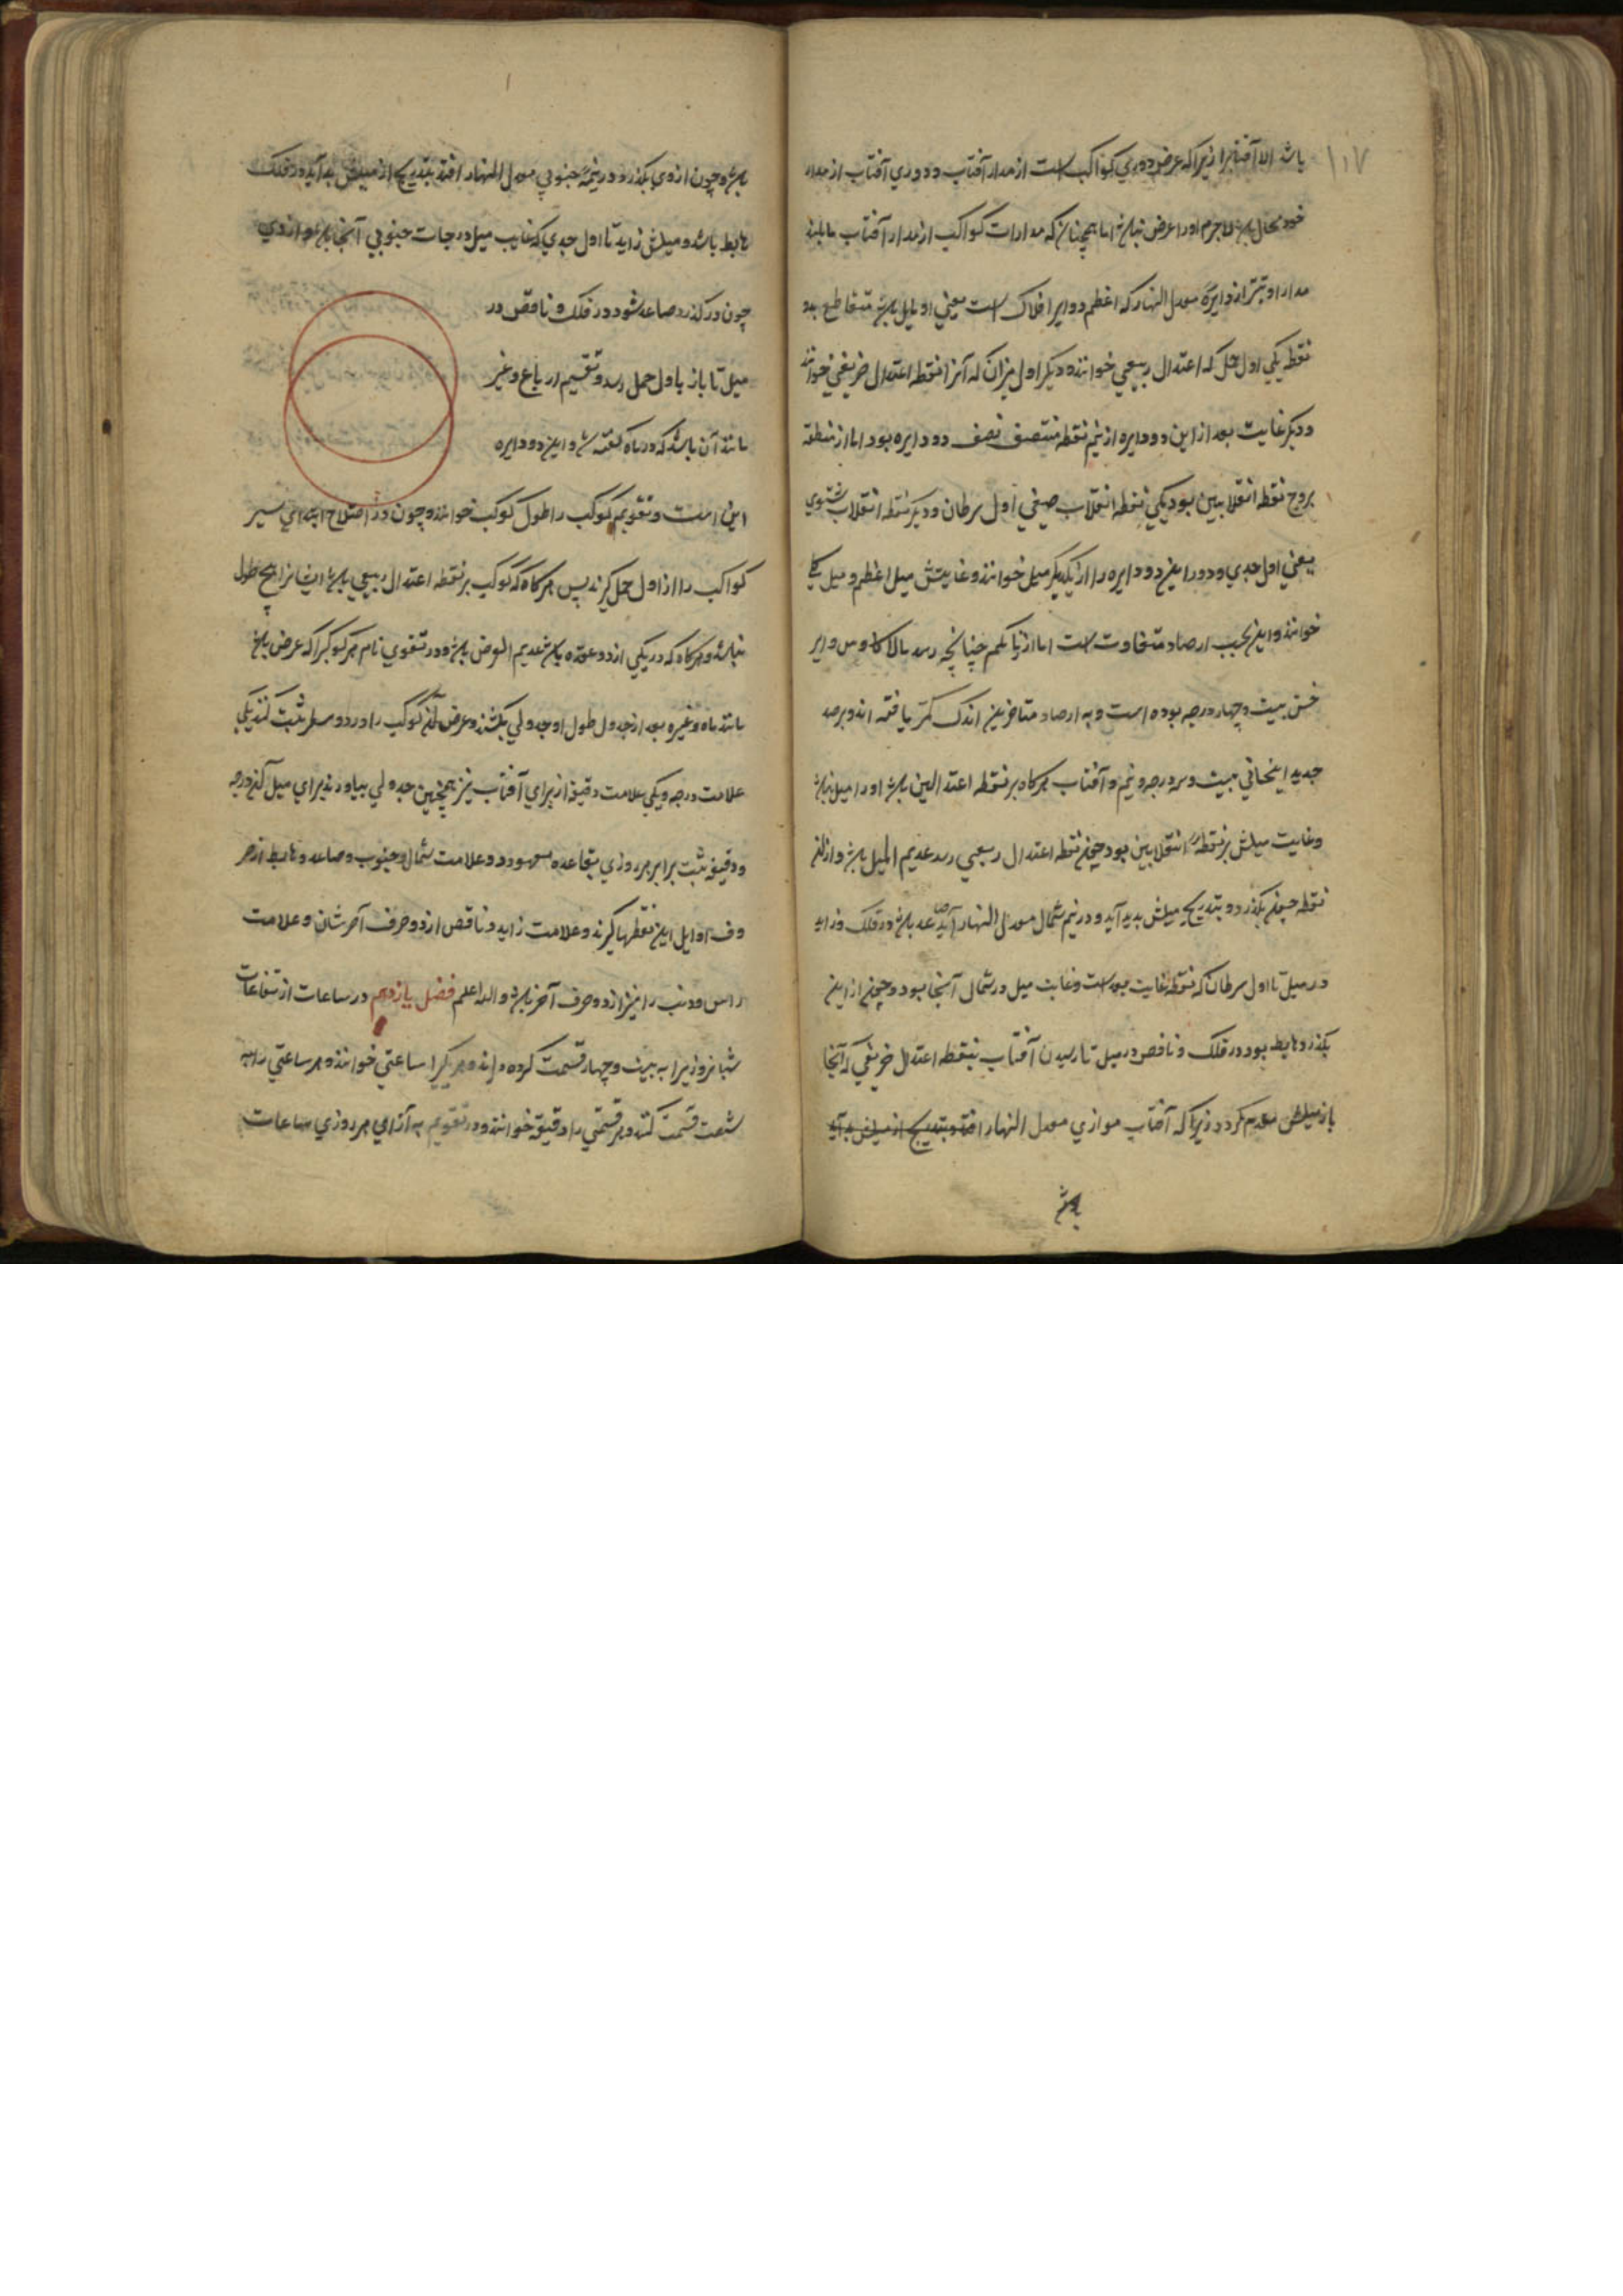 ۱۱۷
باشد الا آفتابرا زیرا که عرض دوری کواکب است از مدار آفتاب و دوری آفتاب از مدار
خود محال باشد لاجرم او را عرض نباشد اما همچنان که مدارات کواکب از مدار آفتاب مایلند
مدار او نیز از دایرهٔ معدل النهار که اعظم دوایر افلاک است یعنی او مایل باشد متقاطع بدو
نقطه یکی اول حمل که اعتدال ربیعی خوانند و دیکر اول میزان که آنرا نقطه اعتدال خریفی خوانند
و دیکر غایت بعد از این دو دایره از نیم نقطه منتصف نصف دو دایره بود اما از منطقه
بروج نقطه انقلابین بود یکی نقطه انقلاب صیفی اول سرطان و دیکر نقطه انقلاب شتوی
یعنی اول جدی و دور این دو دایره را از یکدیکر میل خوانند و غایتش میل اعظم و میل کلی
خوانند و این بحسب ارصاد متفاوت است اما چنانچه رسد
بیست و چهار درجه بوده است و به ارصاد متاخرین اندک کمتر یافته اند و برصد
جدید ایلخانی بیست و سه درجه و نیم و آفتاب هرکاه بر نقطه اعتدالین باشد او را میل نباشد
و غایت میلش بر نقطهٔ انقلابین بود چون نقطه اعتدال ربیعی رسد عدیم المیل باشد و از ان
نقطه چون بکذرد و بتدریج میلش بدید آید و در نیم شمال معدل النهار آید صاعد باشد در فلک و زاید
در میل تا اول سرطان که نقطه غایت بعد است و غایت میل در شمال آنجا بود و چون از این
بکذرد هابط بود در فلک و ناقص در میل تا رسیدن آفتاب بنقطه اعتدال خریفی که آنجا
باز میلش معدم کردد زیرا که آفتاب موازی معدل النهار افتد و بتدریج از میلش بد آید
باشد و چون از وی بکذرد و در نیمهٔ جنوبی معدل النهار افتد بتدریج از میلش بد آید و در فلک
هابط باشد و میلش زاید تا اول جدی که غایب میل درجات جنوبی آنجا باشد و از وی
چون در کذرد صاعد شود در فلک و ناقص در
میل تا باز باول حمل رسد و تقسیم ارباع و غیر
مانند آن باشد که در ماه کفته شد و این دو دایره
این است و تقویم کوکب را طول کوکب خوانند و چون در اصطلاح ابتدای سیر
کواکب را از اول حمل کیرند پس هرکاه که کوکب بر نقطه اعتدال ربیعی باشد انرا هیچ طول
نباشد و هرکاه که در یکی از دو عقده باشد عدیم العرض باشد و در تقوی نام هر کوکبرا که عرض باشد
مانند ماه و غیره بعد از جدول طول او جدولی بکشند و عرض آن کوکب را در دو سطر ثبت کنند یکی
علامت درجه و یکی علامت دقیقه از برای آفتاب نیز همچنین جدولی بیاورند برای میل آن درجه
و دقیقه ثبت برابر هر روزی بقاعده معهود و علامت شمال و جنوب و صاعد و هابط از حر
وف اوایل این نقطها کیرند و علامت زاید و ناقص از دو حرف آخرشان و علامت
راس و ذنب را نیز از دو حرف آخر باشد والله اعلم فصل یازدهم در ساعات ارتفاعات
شبانروزیرا به بیست و چهار قسمت کرده اند و هر یکیرا ساعتی خوانند و هر ساعتی را به
شصت قسمت کنند و هر قسمتی را دقیقه خوانند و در تقویم به ازای هر روزی ساعات